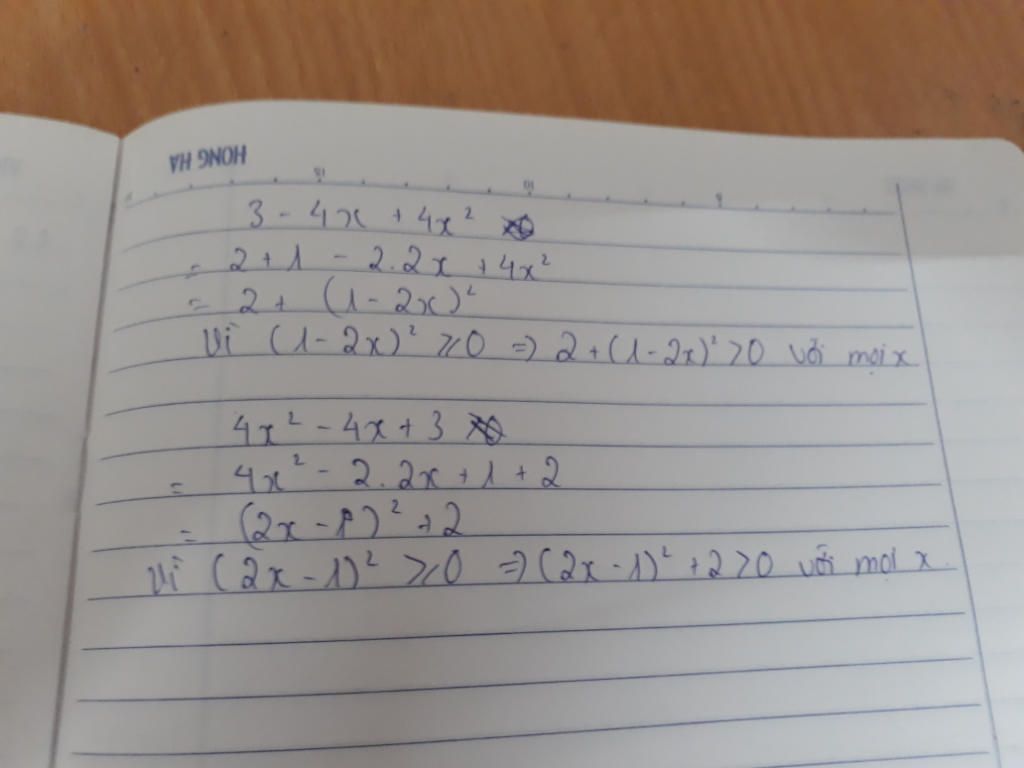 HONG HA
3 - 4x + 4x²
= 2 + 1 - 2.2x + 4x²
= 2 + (1 - 2x)²
Vì (1 - 2x)² ⩾ 0 => 2 + (1 - 2x)² > 0 với mọi x
4x² - 4x + 3
= 4x² - 2.2x + 1 + 2
= (2x - 1)² + 2
Vì (2x - 1)² ⩾ 0 => (2x - 1)² + 2 > 0 với mọi x